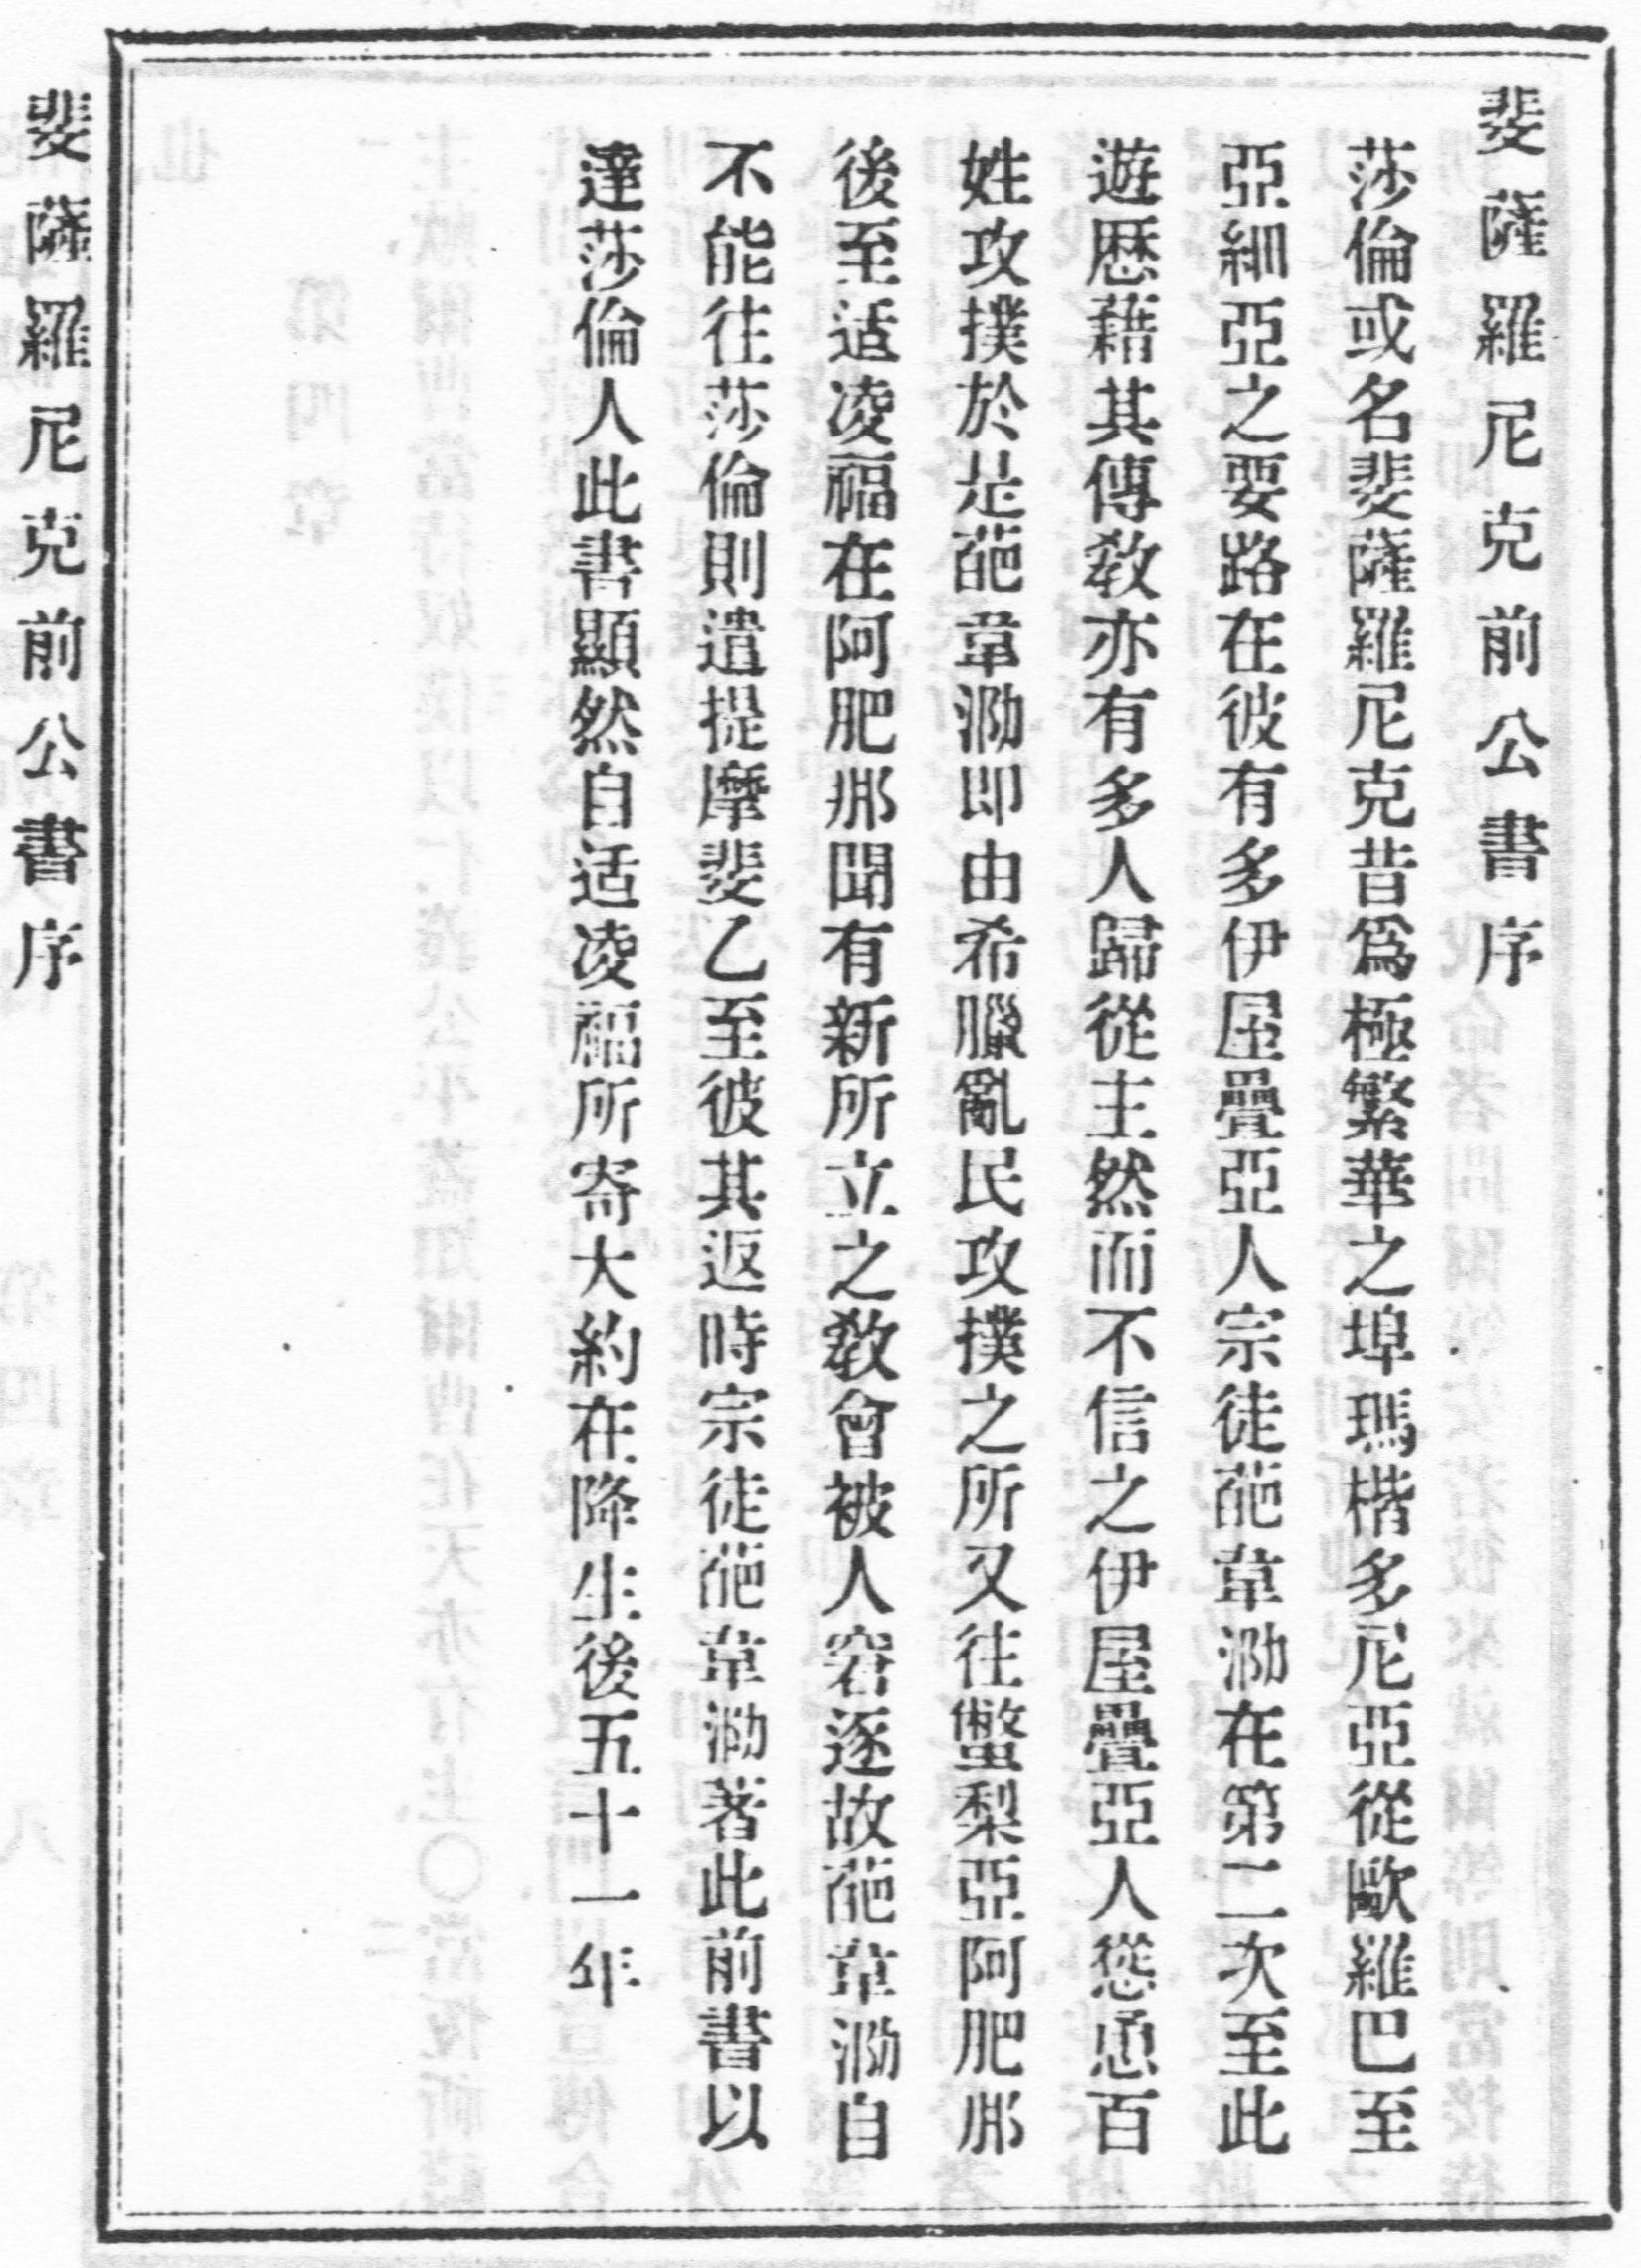 斐薩羅尼克前公書序
莎倫或名斐薩羅尼克昔爲極繁華之埠瑪楷多尼亞從歐羅巴至
亞細亞之要路在彼有多伊屋疊亞人宗徒葩韋泐在第二次至此
遊歷藉其傳教亦有多人歸從主然而不信之伊屋疊亞人慫恿百
姓攻撲於是葩韋泐即由希臘亂民攻撲之所又往蟞梨亞阿肥那
後至适凌福在阿肥那聞有新所立之教會被人窘逐故葩韋泐自
不能往莎倫則遣提摩斐乙至彼其返時宗徒葩韋泐著此前書以
達莎倫人此書顯然自适凌福所寄大約在降生後五十一年
斐薩羅尼克前公書序